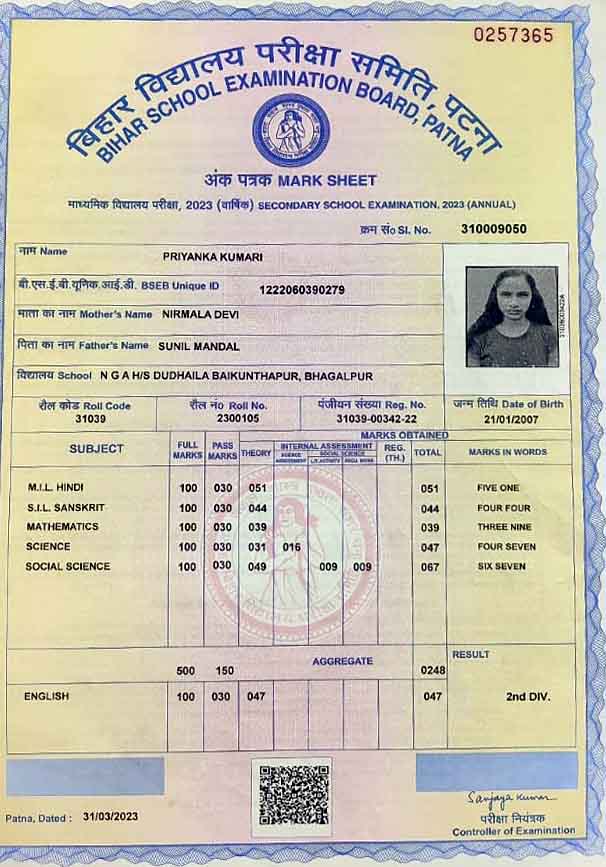 0257365
बिहार विद्यालय परीक्षा समिति, पटना
BIHAR SCHOOL EXAMINATION BOARD, PATNA
अंक पत्रक MARK SHEET
माध्यमिक विद्यालय परीक्षा, 2023 (वार्षिक) SECONDARY SCHOOL EXAMINATION, 2023 (ANNUAL)
क्रम सं० Sl. No. 310009050
नाम Name PRIYANKA KUMARI
बी.एस.ई.बी.यूनिक.आई.डी. BSEB Unique ID 1222060390279
माता का नाम Mother's Name NIRMALA DEVI
पिता का नाम Father's Name SUNIL MANDAL
विद्यालय School N G A H/S DUDHAILA BAIKUNTHAPUR, BHAGALPUR
रौल कोड Roll Code रौल नं० Roll No. पंजीयन संख्या Reg. No. जन्म तिथि Date of Birth
31039 2300105 31039-00342-22 21/01/2007
SUBJECT FULL MARKS PASS MARKS MARKS OBTAINED
THEORY INTERNAL ASSESSMENT REG. (TH.) TOTAL MARKS IN WORDS
SCIENCE SOCIAL SCIENCE
M.I.L. HINDI 100 030 051 051 FIVE ONE
S.I.L. SANSKRIT 100 030 044 044 FOUR FOUR
MATHEMATICS 100 030 039 039 THREE NINE
SCIENCE 100 030 031 016 047 FOUR SEVEN
SOCIAL SCIENCE 100 030 049 009 009 067 SIX SEVEN
500 150 AGGREGATE 0248 RESULT
ENGLISH 100 030 047 047 2nd DIV.
Sanjaya Kumar
Patna, Dated : 31/03/2023
परीक्षा नियंत्रक
Controller of Examination